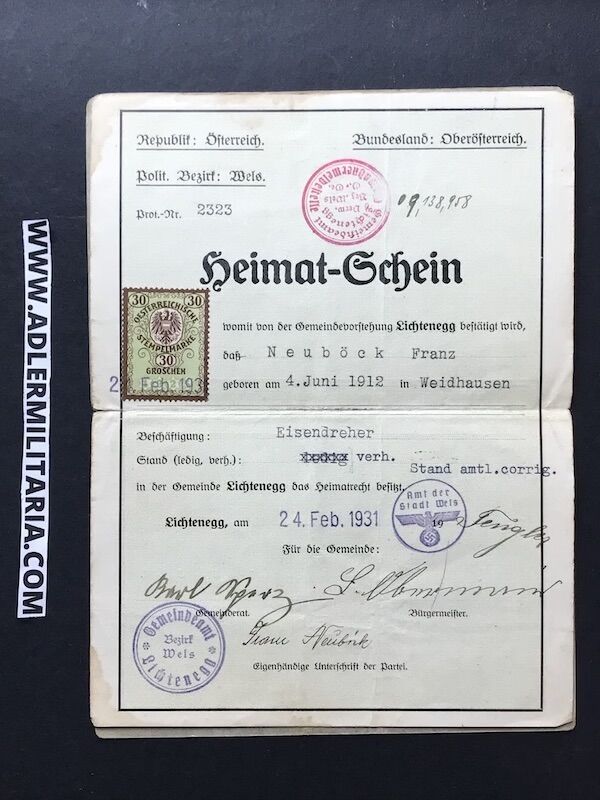 Republik: Österreich. Bundesland: Oberösterreich.
Polit. Bezirk: Wels.
Prot.-Nr. 2323
Heimat-Schein
30 30
OESTERREICHISCHE
STEMPELMARKE
30
GROSCHEN
womit von der Gemeindevorstehung Lichtenegg bestätigt wird,
daß Neuböck Franz
geboren am 4. Juni 1912 in Weidhausen
Feb. 193
Beschäftigung: Eisendreher
Stand (ledig, verh.): ledig verh.
Stand amtl.corrig.
in der Gemeinde Lichtenegg das Heimatrecht besitzt.
Amt der
Stadt Wels
Lichtenegg, am 24. Feb. 1931 19
Für die Gemeinde:
Karl
Gemeinderat. Bürgermeister.
Gemeindeamt
Bezirk
Wels
Lichtenegg
Franz Neuböck
Eigenhändige Unterschrift der Partei.
WWW.ADLERMILITARIA.COM